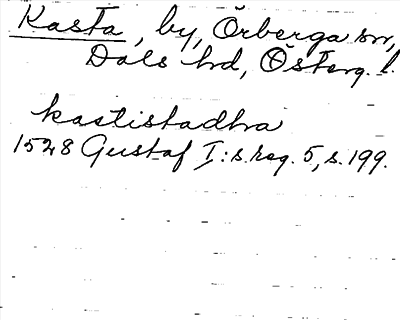 Kasta, by, Örberga sn,
Dals hd, Österg. l.
kastistadhra
1528 Gustaf I:s reg. 5, s. 199.